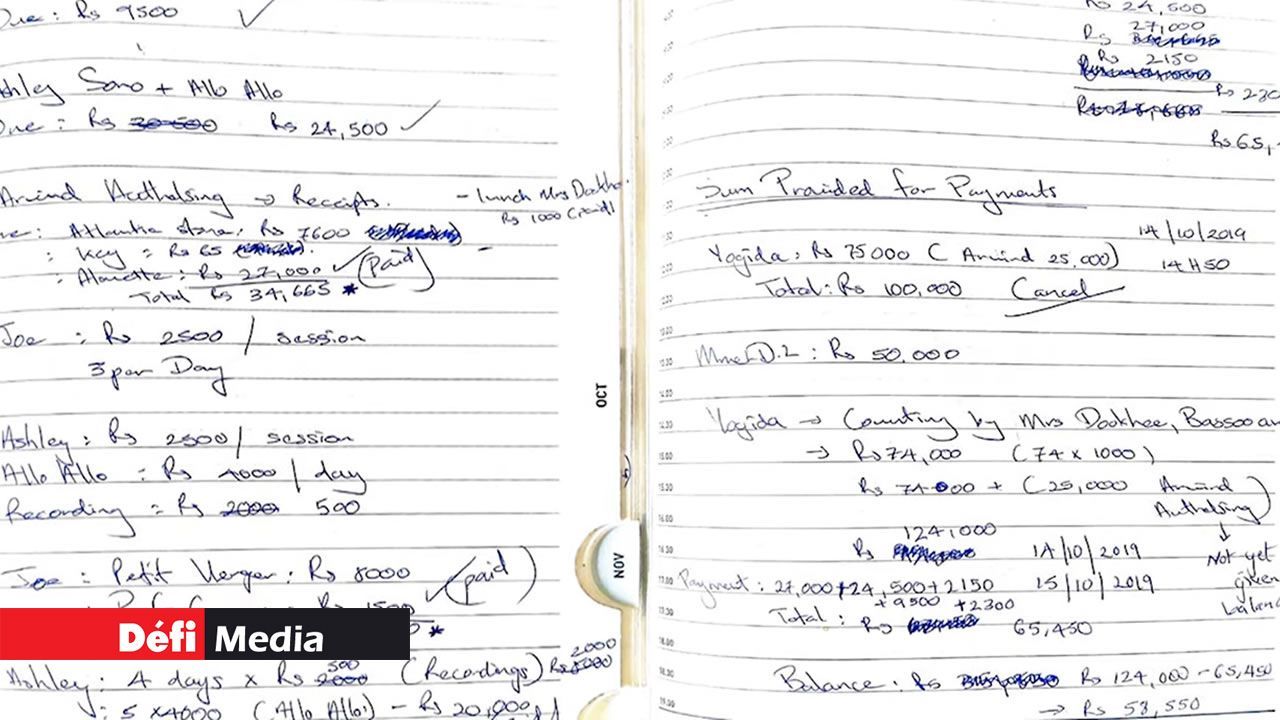 Due: Rs 9500
Ashley Sono + Allo Allo
Due: Rs 30500 Rs 24,500
Arvind → Receipts.
- lunch Mrs Dookhee
Rs 1000 (Paid)
: Rs 7600
: Key = Rs 65
: Alouette: Rs 27,000 (Paid)
Total Rs 34,665 *
Joe : Rs 2500 / session
3 per Day
Ashley: Rs 2500 / session
Allo Allo = Rs 4000 / day
Recording = Rs 2000 500
Joe: Petit Verger: Rs 8000 (paid)
Rs 1500
Ashley: 4 days x Rs 2000 500 (Recordings) Rs 2000
: 5 x4000 (Allo Allo) - Rs 20,000
Défi Media
OCT
NOV
Rs 24,500
27,000
Rs
Rs 2150
Rs 230
Rs 65,4
Sum Provided for Payments
14/10/2019
Yogida: Rs 75000 (Arvind 25,000) 14H50
Total: Rs 100,000 Cancel
D.2 : Rs 50.000
Yogida → Counting by Mrs Dookhee, Bassoo an
→ Rs 74,000 (74 x 1000)
Rs 74000 + (25,000 Arvind
Authelsing)
124,000
Rs 14/10/2019
Not yet
given
Payment: 27,000+24,500+2150 15/10/2019
+9500 +2300
Total: Rs 65,450
Balance: Rs Rs 124,000 - 65,450
→ Rs 53,550